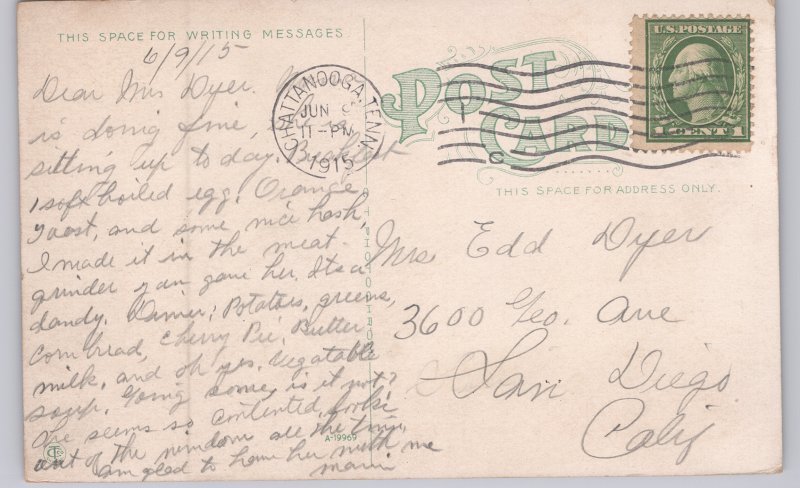 THIS SPACE FOR WRITING MESSAGES
6/9/15
Dear Mrs Dyer.
is doing fine,
sitting up to day.
1 soft boiled egg, Orange,
Toast, and some nice hash,
I made it in the meat
grinder you gave her. Its a
dandy. Dinner: Potatoes, greens,
Corn bread, Cherry Pie, Butter
milk, and oh yes, Vegatable
soup. Going some, is it not?
She seems so contented, looks
out of the window all the time,
am glad to have her with me
CHATTANOOGA, TENN.
JUN 9
11-PM
1915
POST CARD
U.S. POSTAGE
1 CENT 1
THIS SPACE FOR ADDRESS ONLY.
Mrs Edd Dyer
3600 Geo. Ave
San Diego
Calif
A-19969